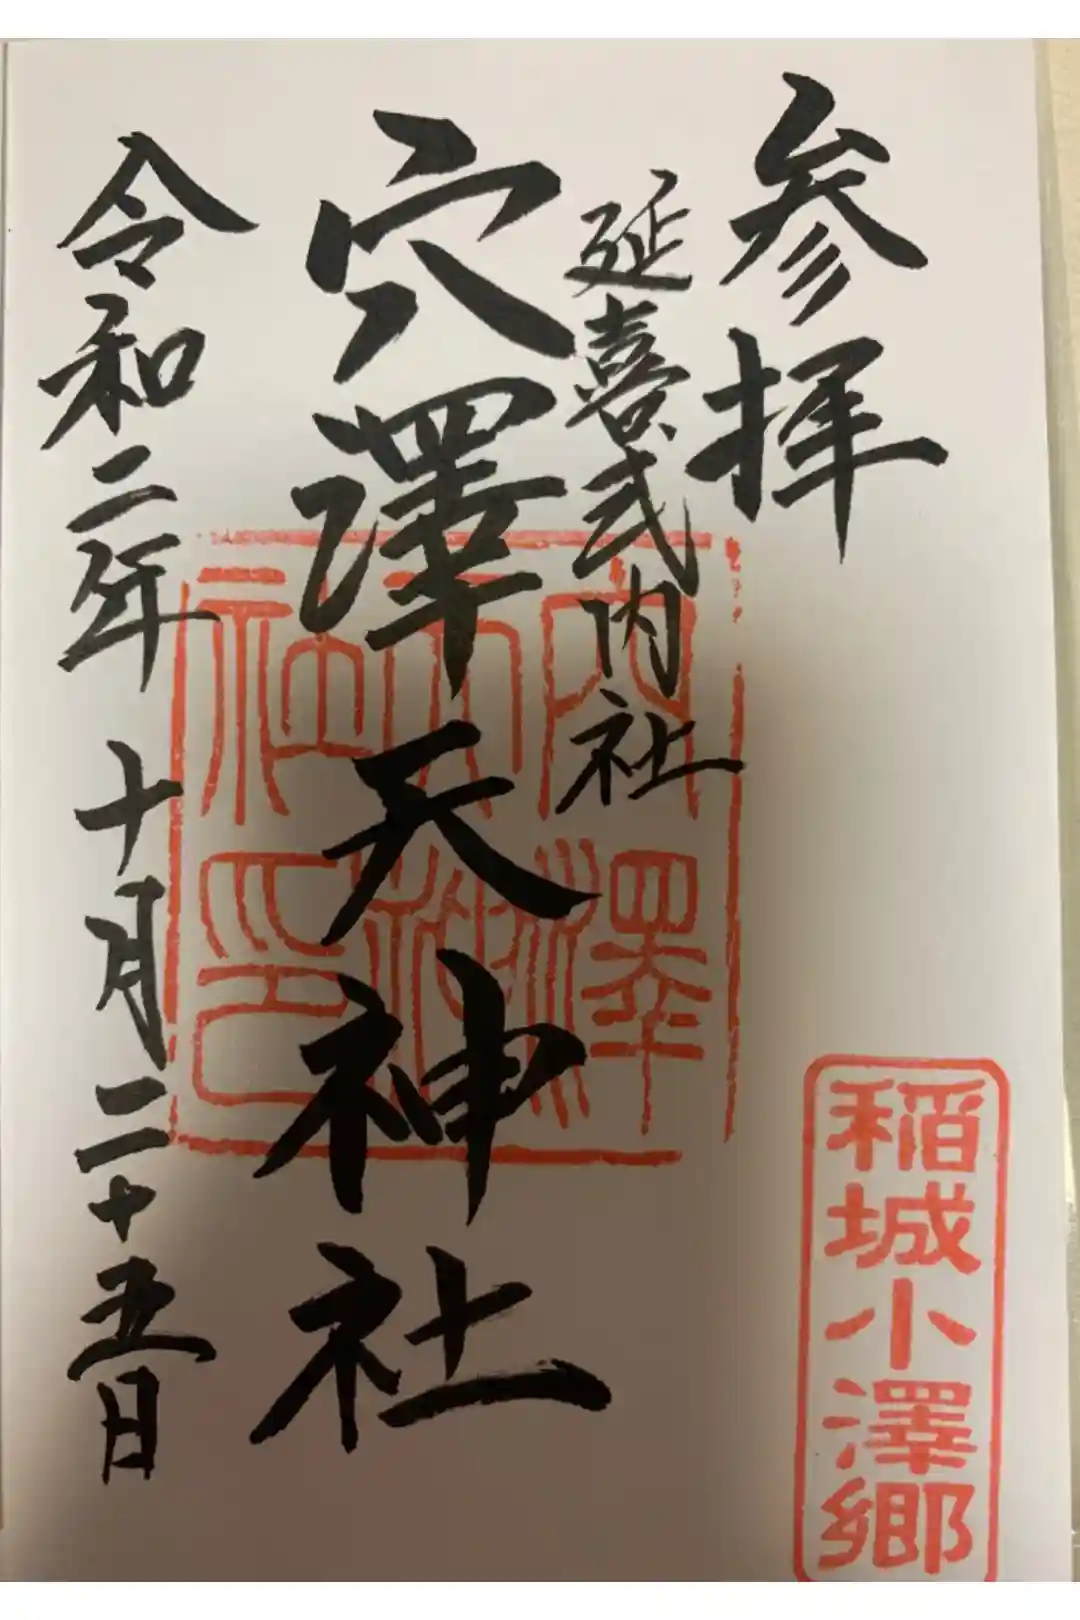 参拝
延喜式内社
穴澤天神社
令和二年十月二十五日
穴澤
天神
社印
稲城小澤郷